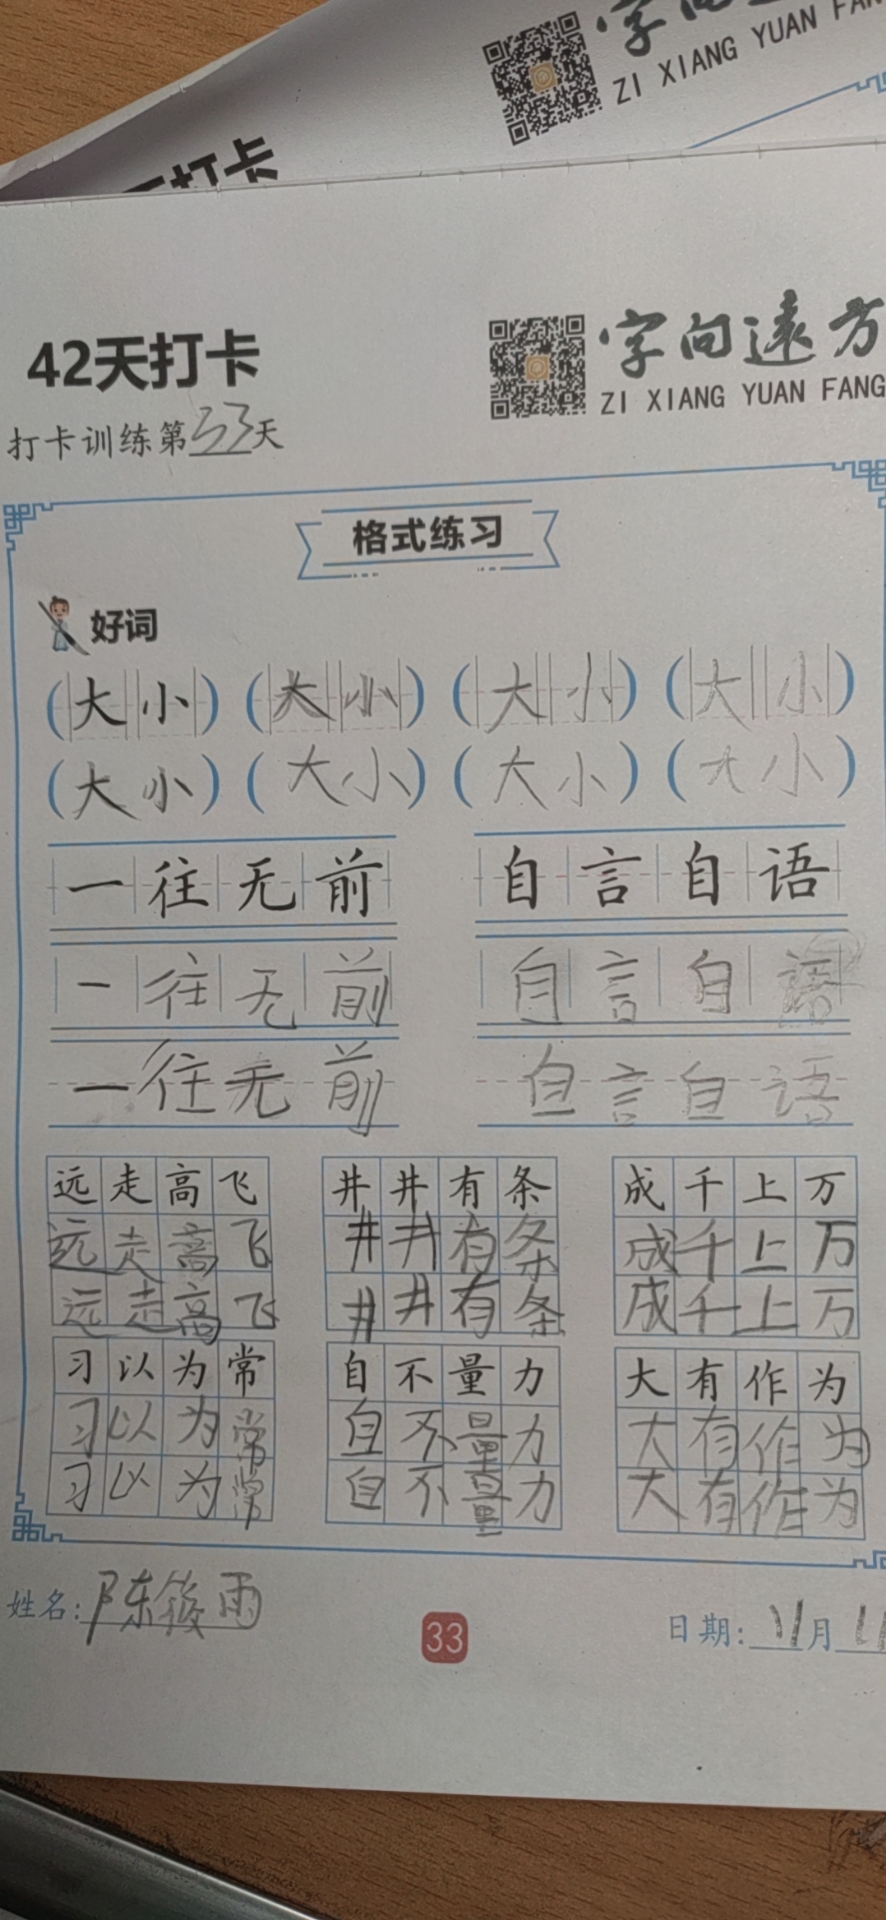 字向远
ZI XIANG YUAN FAN
天打卡
42天打卡
字向遠方
ZI XIANG YUAN FANG
打卡训练第33天
格式练习
好词
(大小) (大小) (大小) (大小)
(大小) (大小) (大小) (大小)
一往无前 自言自语
一往无前 自言自语
一往无前 自言自语
远走高飞 井井有条 成千上万
远走高飞 井井有条 成千上万
远走高飞 井井有条 成千上万
习以为常 自不量力 大有作为
习以为常 自不量力 大有作为
习以为常 自不量力 大有作为
姓名:陈筱雨 33 日期:11月11